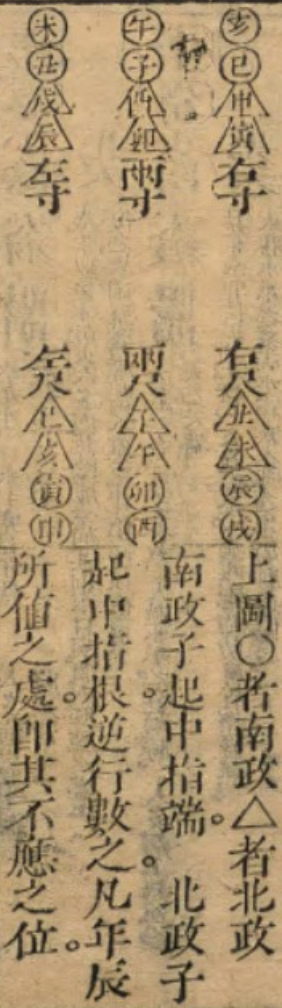 亥巳申寅右寸
午子酉卯兩寸
未丑戌辰左寸
右尺丑未辰戌
兩尺子午卯酉
左尺巳亥寅申
上圖○者南政△者北政
南政子起中指端。北政子
起中指根。逆行數之。凡年辰
所值之處。即其不應之位。